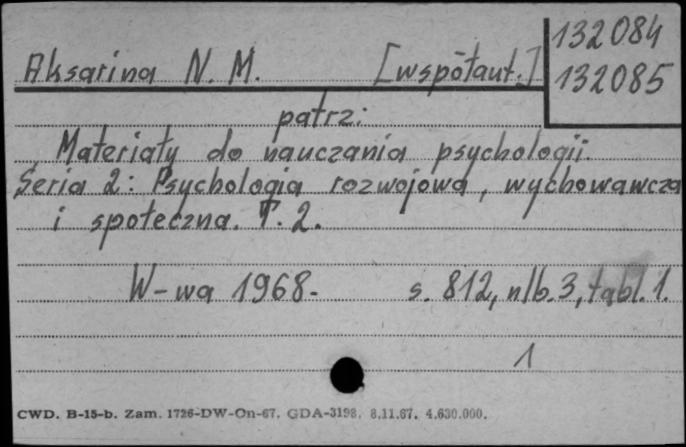 132084
Aksarina N. M. [współaut.] 132085
patrz:
Materiały do nauczania psychologii.
Seria 2: Psychologia rozwojowa, wychowawcza
i społeczna. T. 2.
W-wa 1968- s. 812, nlb. 3, tabl. 1.
1
CWD. B-15-b. Zam. 1726-DW-On-67. GDA-3198. 8.11.67. 4.630.000.